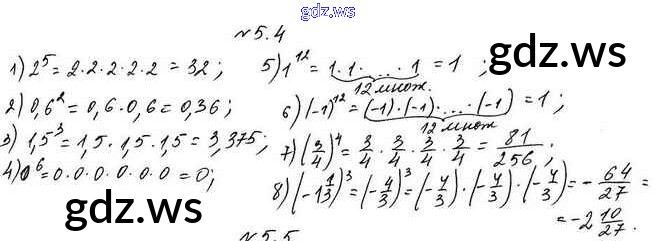 gdz.ws
№5.4
1) 2⁵ = 2·2·2·2·2 = 32;
2) 0,6² = 0,6·0,6 = 0,36;
3) 1,5³ = 1,5·1,5·1,5 = 3,375;
4) 0⁶ = 0·0·0·0·0·0 = 0;
5) 1¹² = 1·1·...·1 = 1;
12 множ.
6) (-1)¹² = (-1)·(-1)·...·(-1) = 1;
12 множ
7) (3/4)⁴ = 3/4 · 3/4 · 3/4 · 3/4 = 81/256;
8) (-1 1/3)³ = (-4/3)³ = (-4/3)·(-4/3)·(-4/3) = -64/27 =
= -2 10/27.
gdz.ws
gdz.ws
gdz.ws
№5.5